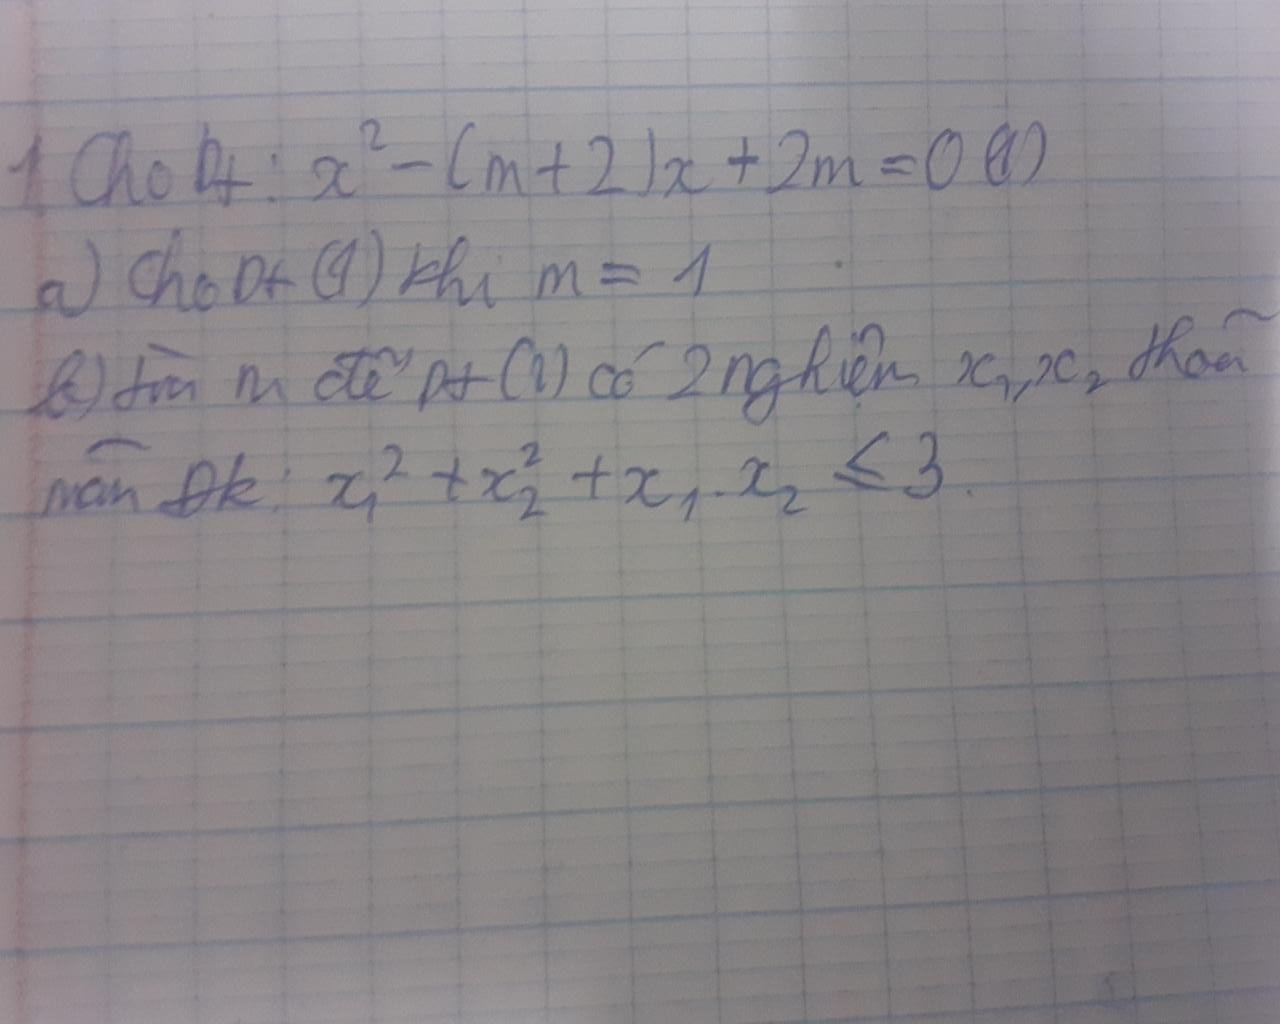 1 Cho Pt: x² - (m+2)x + 2m = 0 (1)
a) Cho Pt (1) khi m = 1
b) tìm m để Pt (1) có 2 nghiệm x₁, x₂ thoã
mãn Đk: x₁² + x₂² + x₁. x₂ ≤ 3.